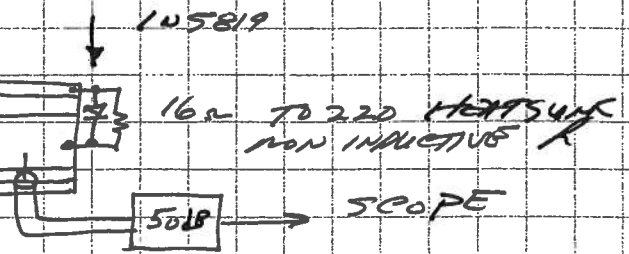 1N5819
16Ω TO220 HEATSINK
NON INDUCTIVE R
50dB
SCOPE